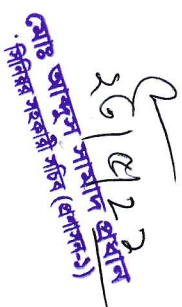 মোঃ আব্দুস সামাদ প্রধান
সিনিয়র সহকারী সচিব (প্রশাসন-১)